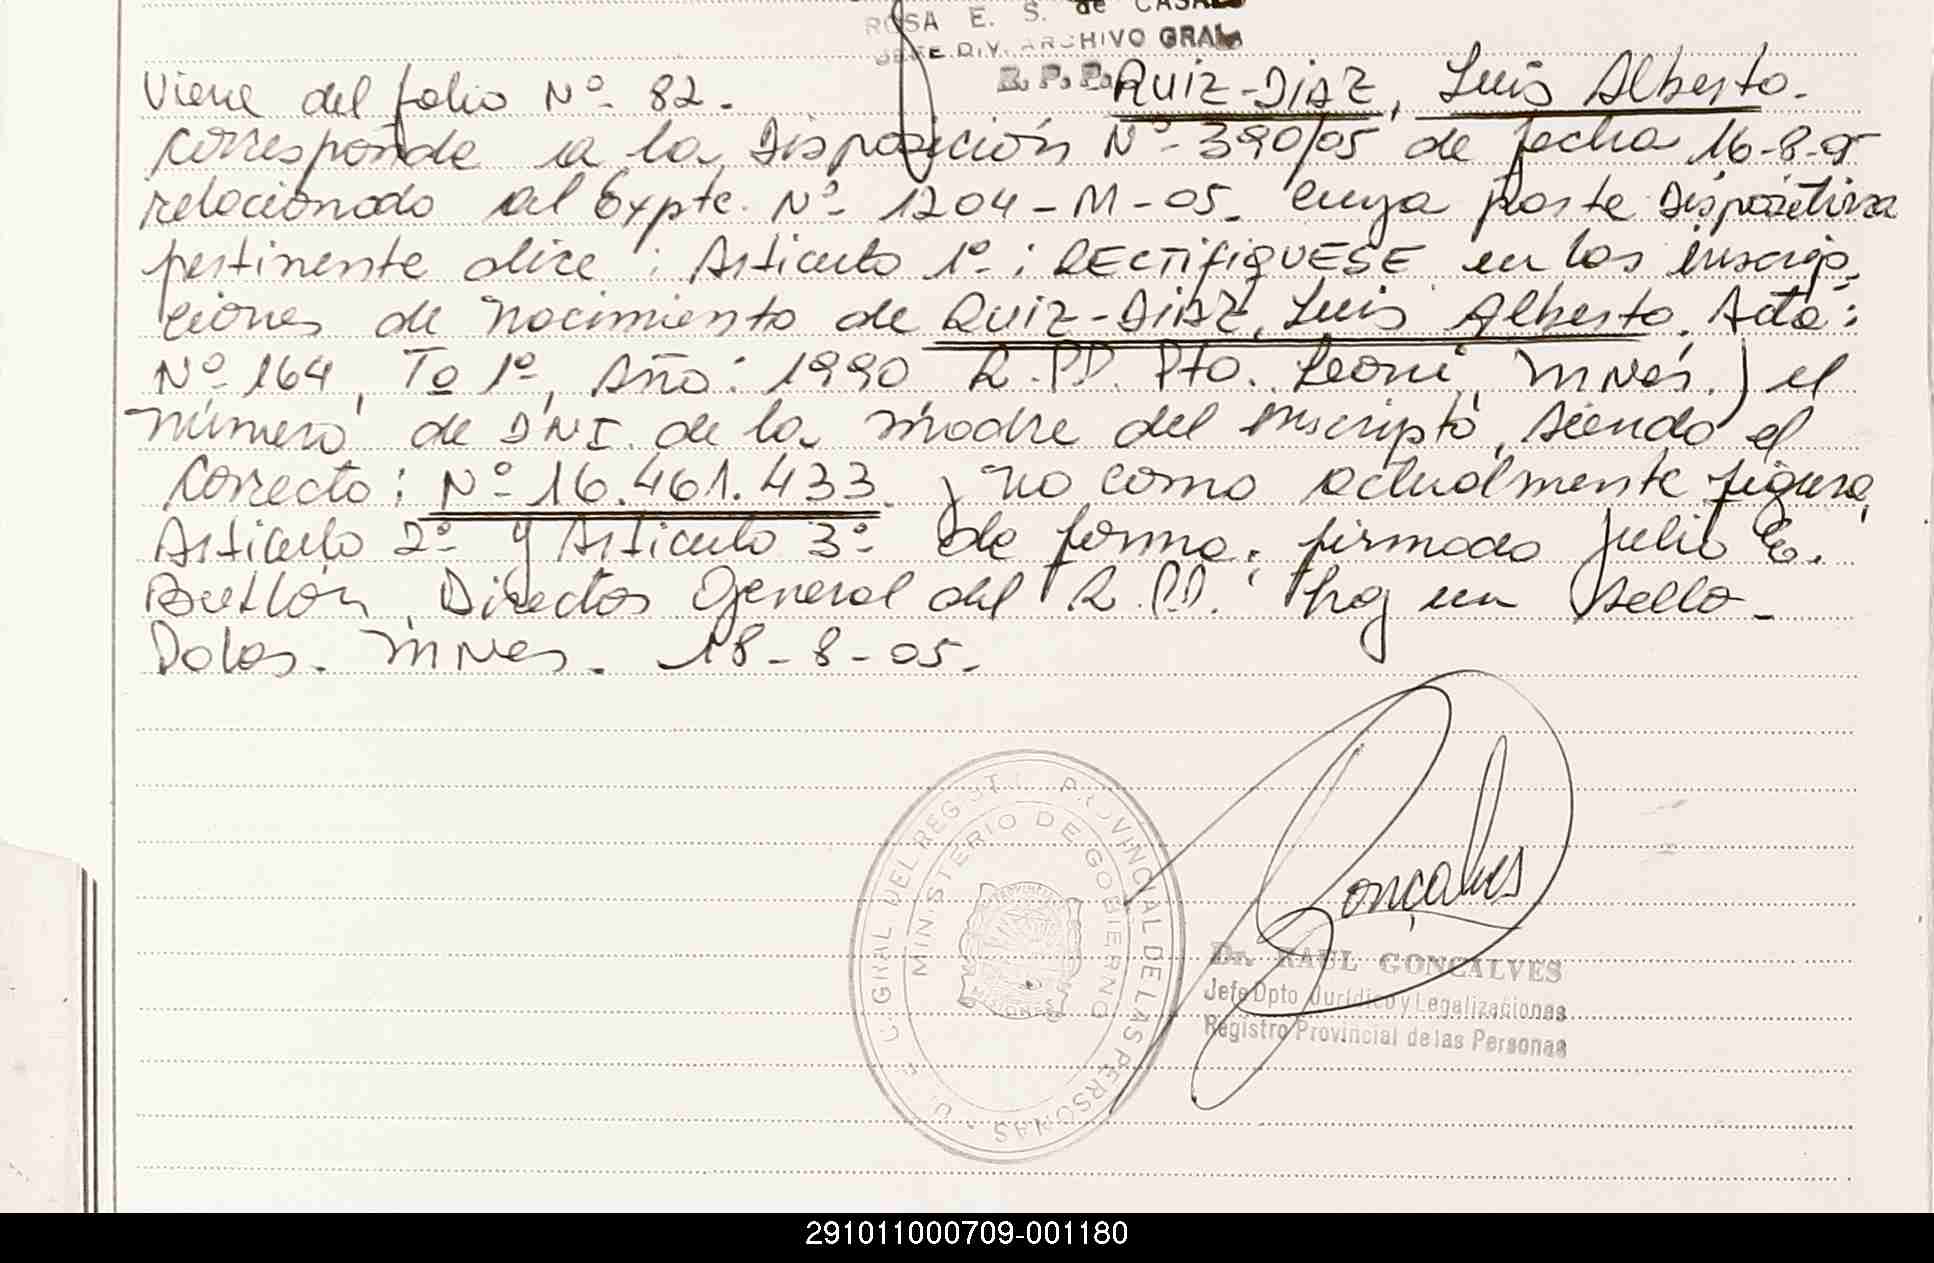 ROSA E. S. de CASAL
JEFE DIV. ARCHIVO GRAL
R. P. P.
Viene del folio Nº 82. RUIZ-DIAZ, Luis Alberto.
Corresponde a la Disposición Nº 390/05 de fecha 16-8-05
relacionado al Expte. Nº 1204-M-05. cuya parte Dispositiva
pertinente dice: Articulo 1º: RECTIFIQUESE en las inscrip-
ciones de nacimiento de RUIZ-DIAZ, Luis Alberto, Acta:
Nº 164, Tº 1º, Año: 1990 R.PP. Pto. Leoni, Mnes.) el
número de DNI de la madre del inscripto, siendo el
correcto: Nº 16.461.433. y no como actualmente figura,
Articulo 2º y Articulo 3º de forma. firmado Julio C.
Director General del R.PP. Hay un Sello-
Mnes. 18-8-05.
Gonçalves
Dr. RAUL GONCALVES
Jefe Dpto Jurídico y Legalizaciones
Registro Provincial de las Personas
GRAL DEL REGIST PROVINCIAL DE LAS PERSONAS
MINISTERIO DE GOBIERNO
PROVINCIA
MISIONES
291011000709-001180